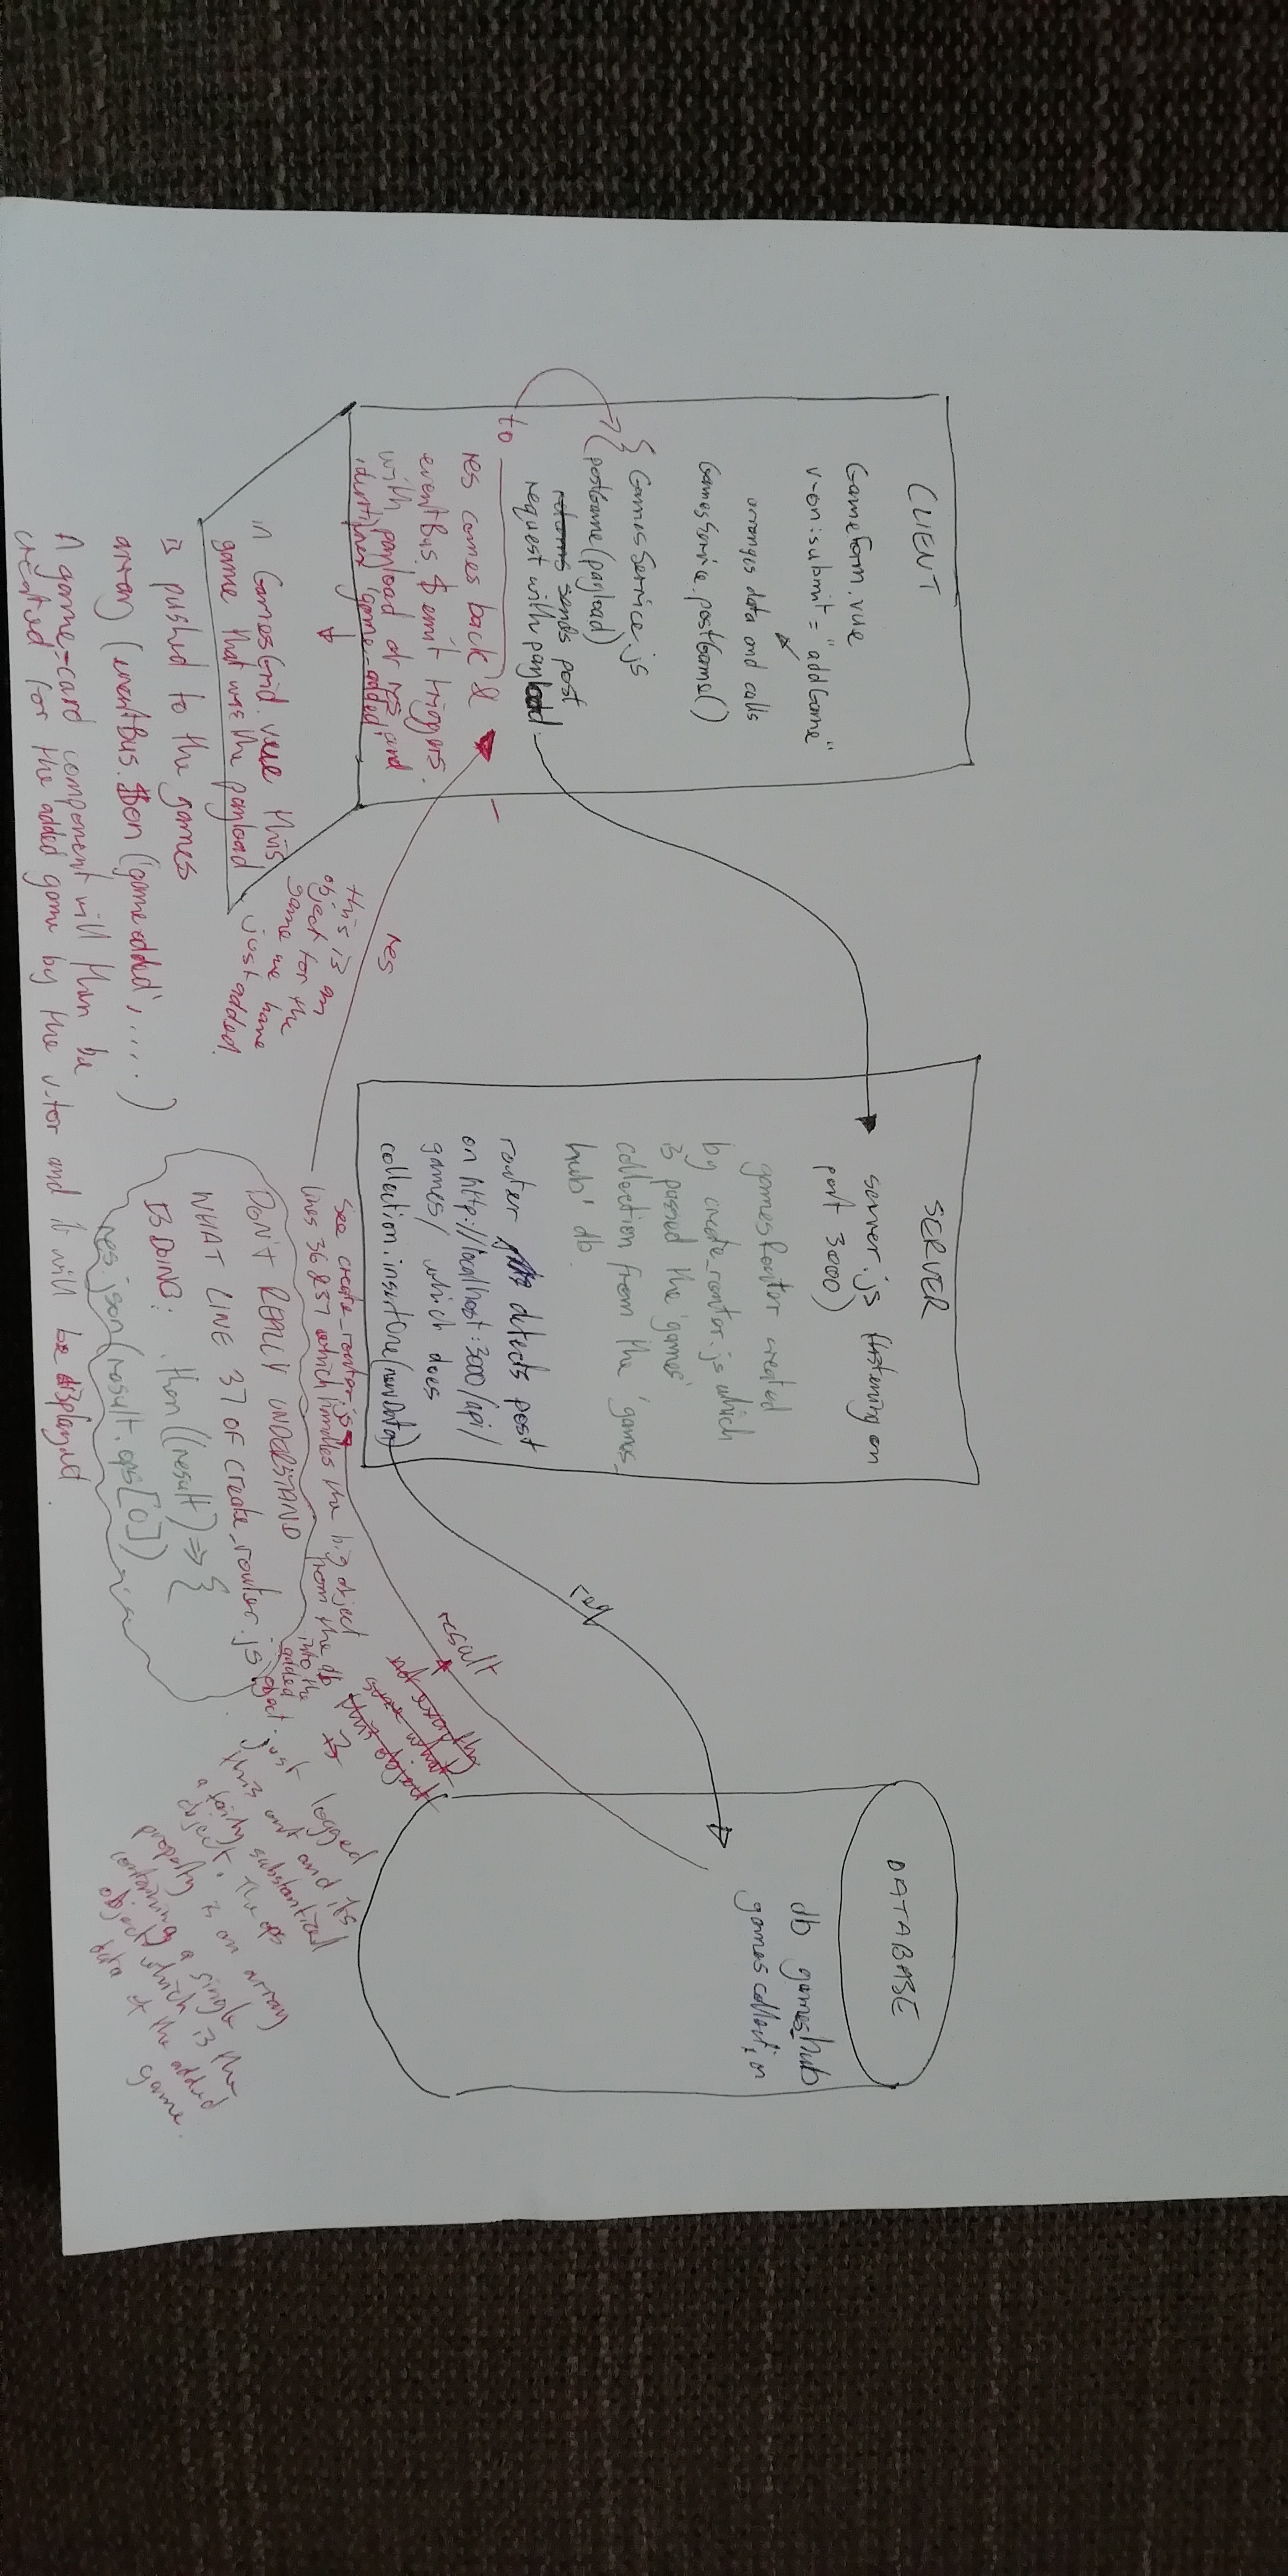 CLIENT
GameForm.vue
v-on:submit="addGame"
arranges data and calls
GamesService.postGame()
GamesService.js
(postGame(payload)
sends post
request with payload.
to
res comes back &
eventBus.$emit triggers.
with payload of res and
identifier 'game-added'
in GamesGrid.vue this
game that was the payload
is pushed to the games
array (eventBus.$on('game-added', ....)
A game-card component will then be
created for the added game by the v-for and it will be displayed.
res
this is an
object for the
game we have
just added.
SERVER
server.js (listening on
port 3000)
gamesRouter created
by create_router.js which
is passed the 'games'
collection from the 'games_
hub' db.
router detects post
on http://localhost:3000/api/
games/ which does
collection.insertOne(newData)
See create_router.js
lines 36 & 37 which handles the big object
from the db
into the
added
object.
DON'T REALLY UNDERSTAND
WHAT LINE 37 OF create_router.js
IS DOING:
.then((result) => {
res.json(result.ops[0])
req
result
just logged
this and its
a substantial
object. The ops
property is an array
containing a single
object which is the
data of the added
game.
DATABASE
db games_hub
games collection